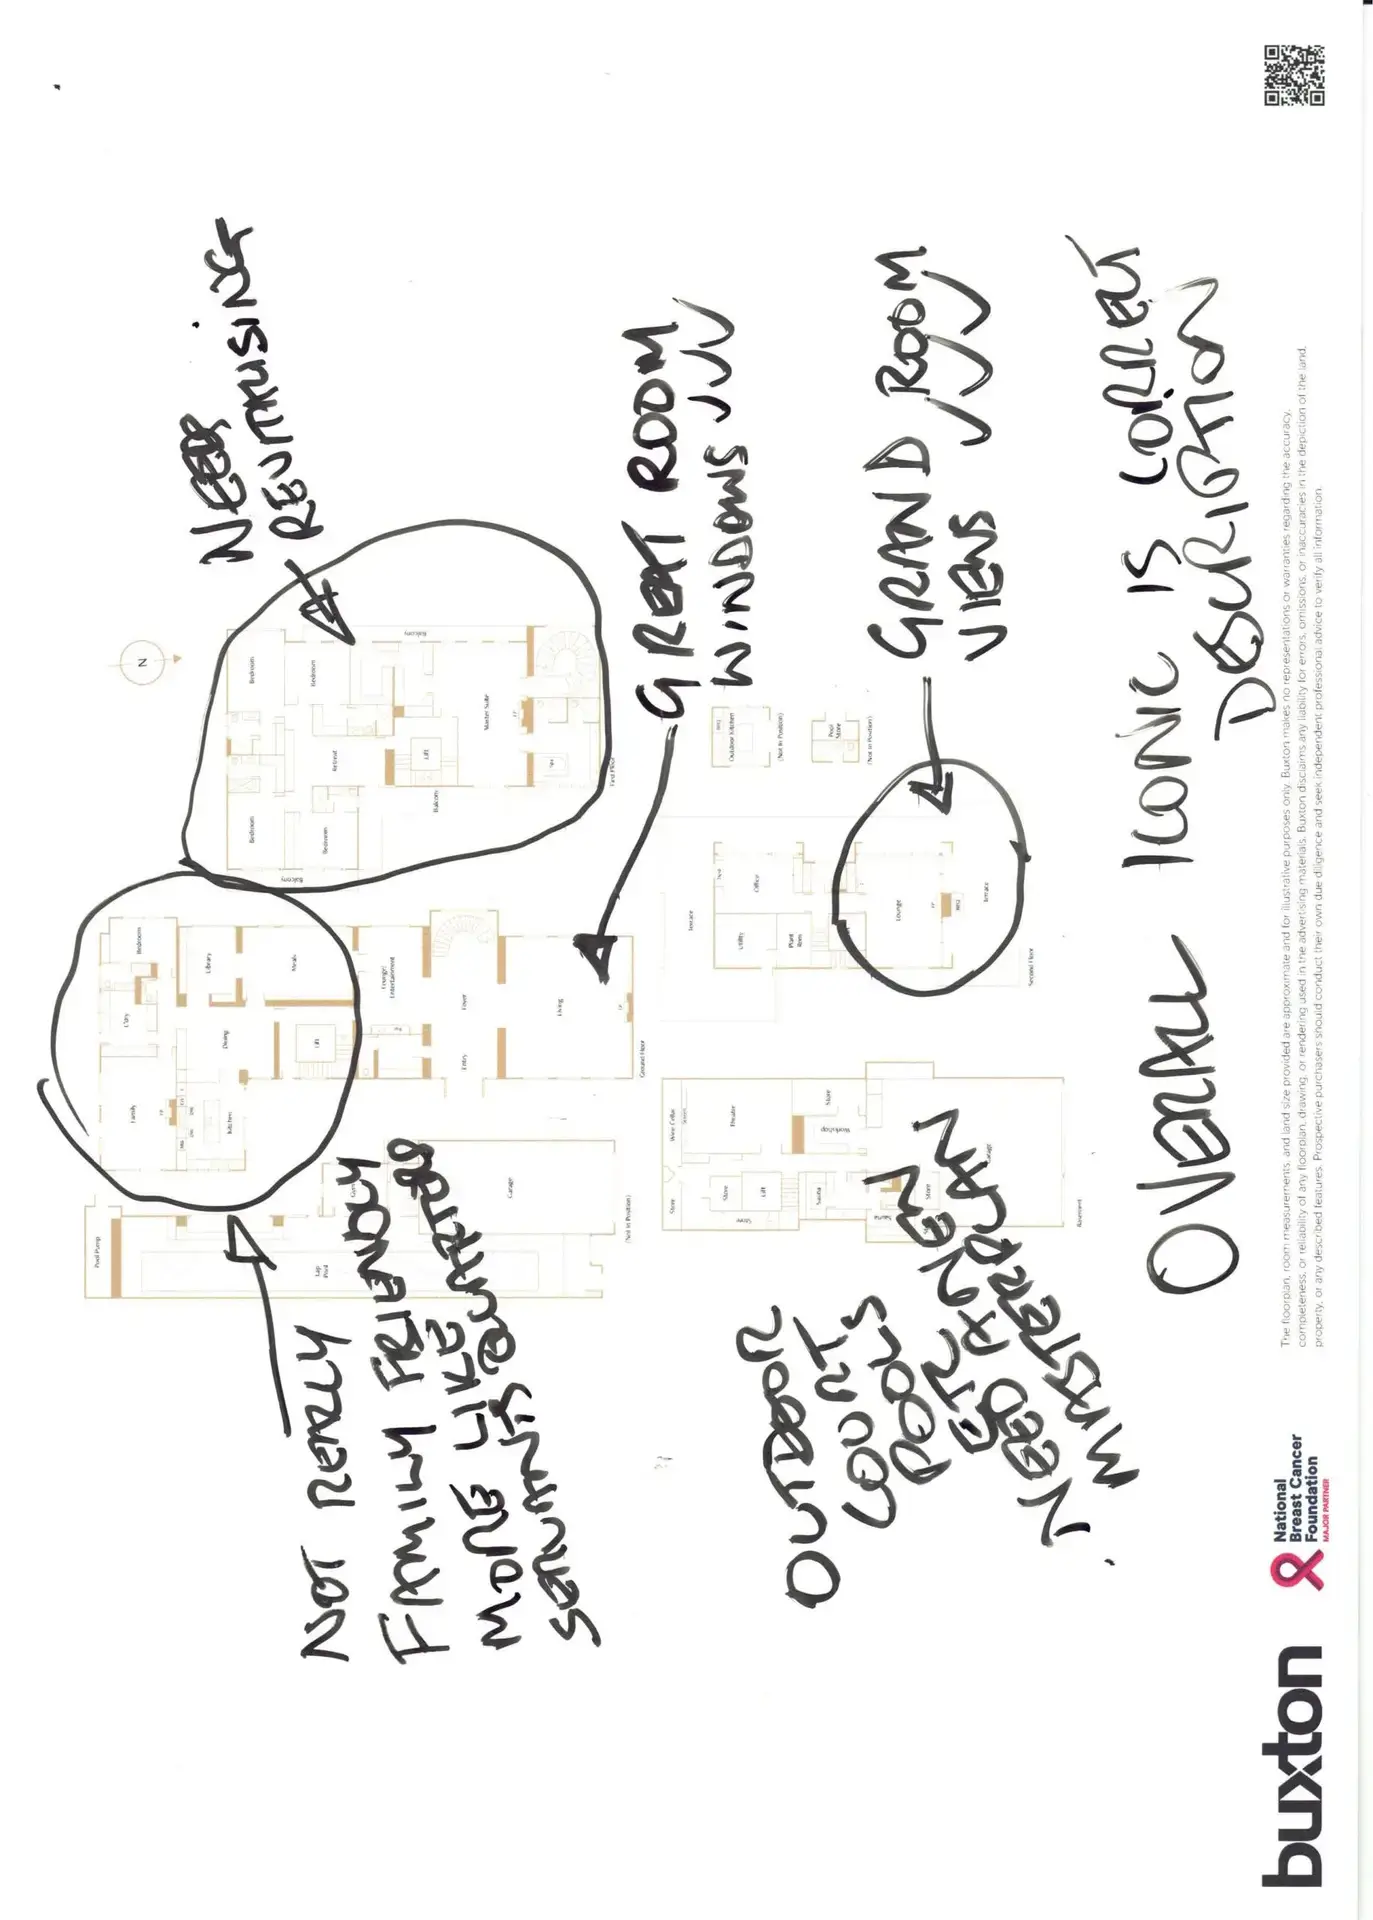 NEEDS
REVITALISING
N
Bedroom
Bedroom
Balcony
Retreat
Lift
Master Suite
FP
Spa
Bedroom
Bedroom
Balcony
Balcony
First Floor
GREAT ROOM
WINDOWS
GRAND ROOM
VIEWS
Bedroom
L'dry
Library
Meals
Family
FP
Dining
Kitchen
Lift
Lounge/
Entertainment
Foyer
Entry
Living
Ground Floor
Outdoor Kitchen
(Not In Position)
Pool
Store
(Not In Position)
Terrace
Office
Utility
Plant
Rm
Lounge
FP
BBQ
Terrace
Second Floor
Pool Pump
Lap
Pool
Gym
Garage
(Not In Position)
Wine Cellar
Theatre
Store
Workshop
Store
Store
Lift
Store
Sauna
Sauna
Store
Garage
Basement
NOT REALLY
FAMILY FRIENDLY
MORE LIKE
SERVANTS QUARTERS
OUTDOOR
COURT
POOLS
ETC
NEED A NEW
MASTERPLAN
OVERALL ICONIC IS CORRECT
DESCRIPTION
The floorplan, room measurements, and land size provided are approximate and for illustrative purposes only. Buxton makes no representations or warranties regarding the accuracy,
completeness, or reliability of any floorplan, drawing, or rendering used in the advertising materials. Buxton disclaims any liability for errors, omissions, or inaccuracies in the depiction of the land,
property, or any described features. Prospective purchasers should conduct their own due diligence and seek independent professional advice to verify all information.
buxton
National
Breast Cancer
Foundation
MAJOR PARTNER